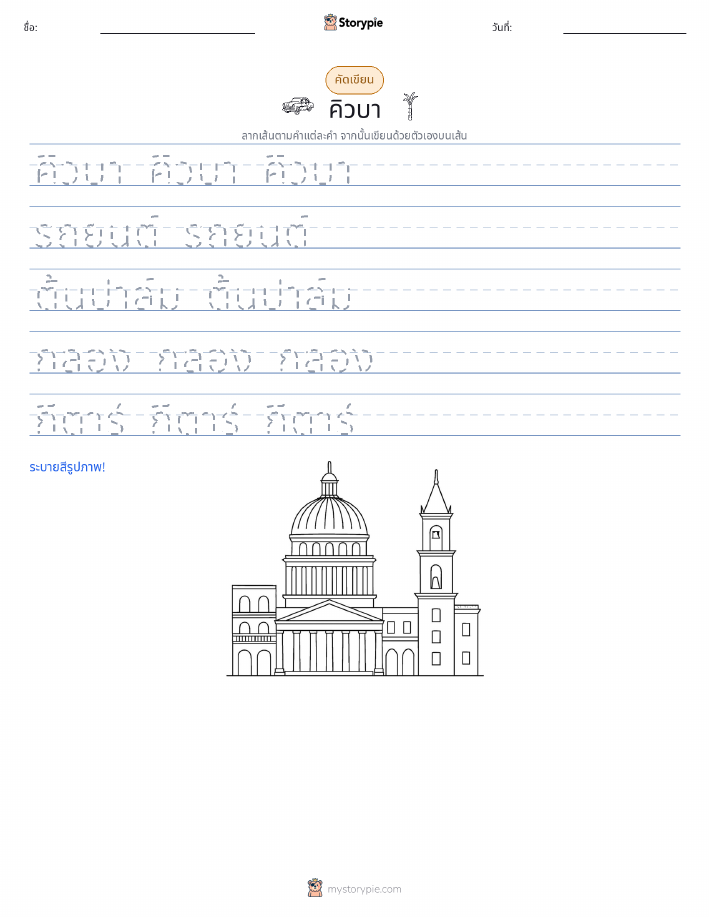 ชื่อ:
Storypie
วันที่:
คัดเขียน
คิวบา
ลากเส้นตามคำแต่ละคำ จากนั้นเขียนด้วยตัวเองบนเส้น
คิวบา คิวบา คิวบา
รถยนต์ รถยนต์
ต้นปาล์ม ต้นปาล์ม
กลอง กลอง กลอง
กีตาร์ กีตาร์ กีตาร์
ระบายสีรูปภาพ!
mystorypie.com